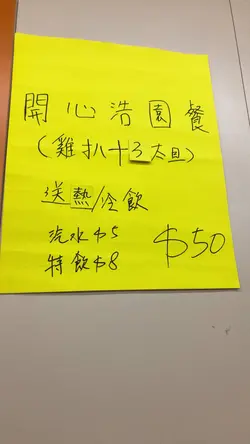 開心浩園餐
(雞扒+3太旦)
送熱/冷飲
汽水$5
特飲$8
$50